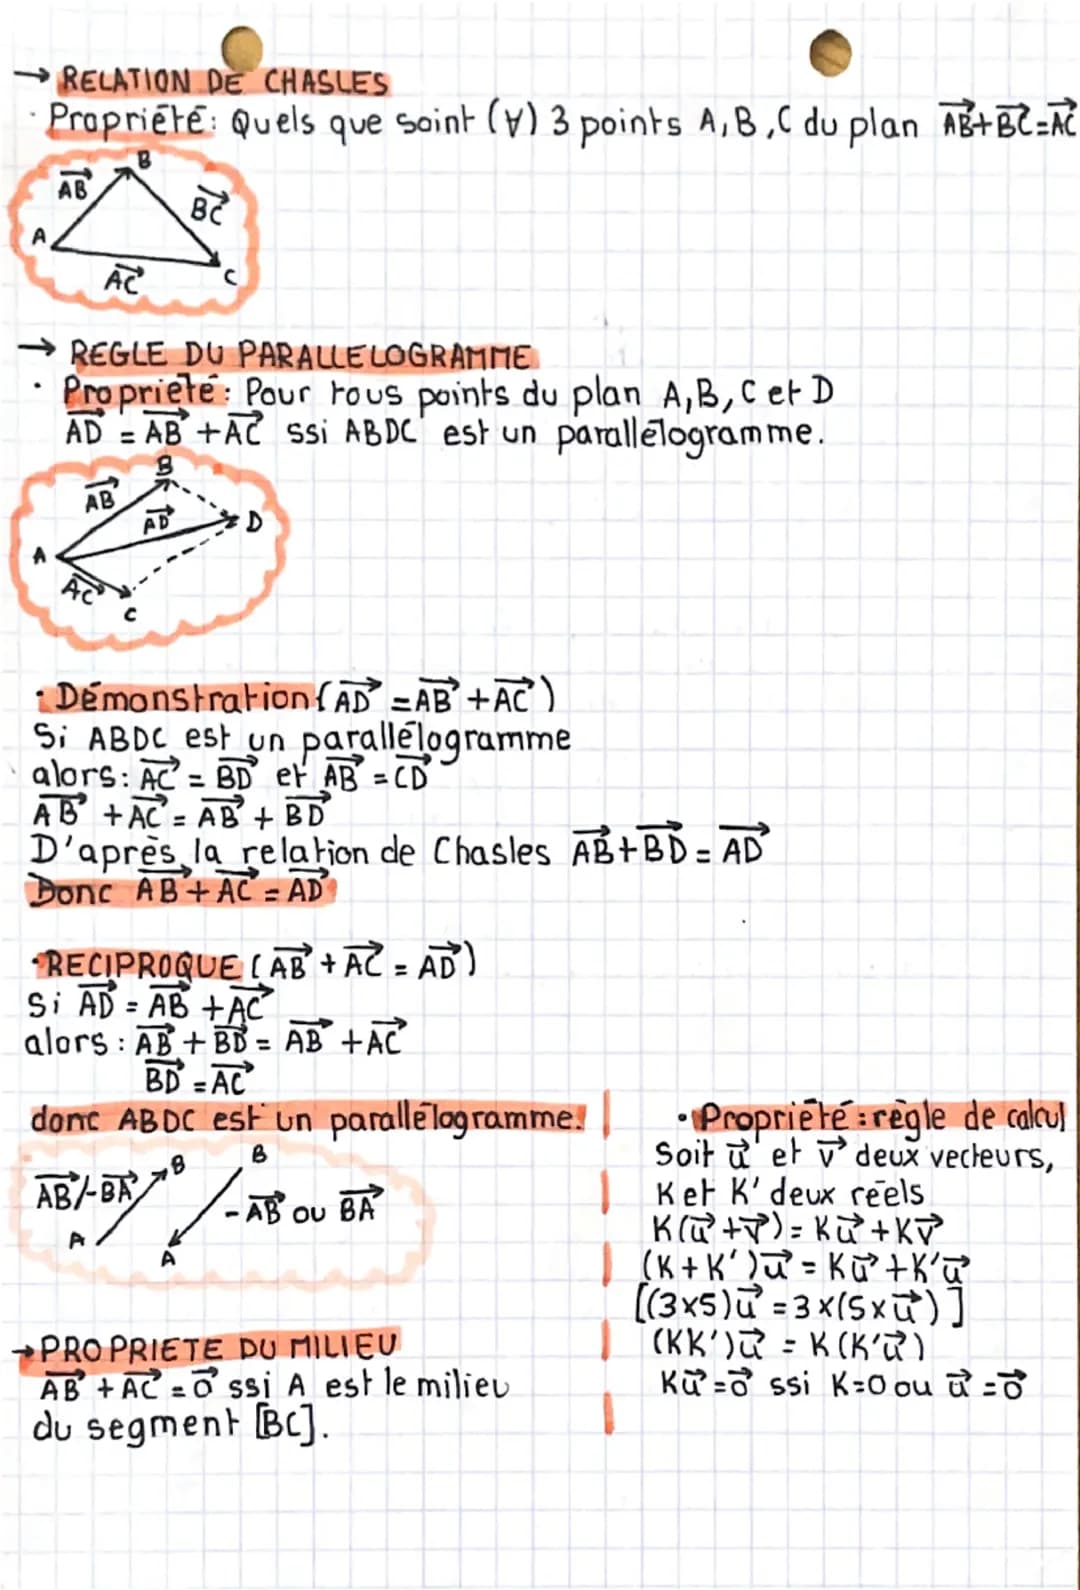 → RELATION DE CHASLES
· Propriété: Quels que soint (∀) 3 points A,B,C du plan A⃗B⃗+B⃗C⃗=A⃗C⃗
B
A⃗B⃗
B⃗C⃗
A
A⃗C⃗
C
→ REGLE DU PARALLELOGRAMME
· Propriété: Pour tous points du plan A,B,C et D
A⃗D⃗ = A⃗B⃗ + A⃗C⃗ ssi ABDC est un parallélogramme.
B
A⃗B⃗
A⃗D⃗
D
A
A⃗C⃗
C
· Démonstration (A⃗D⃗ = A⃗B⃗ + A⃗C⃗)
Si ABDC est un parallélogramme
alors: A⃗C⃗ = B⃗D⃗ et A⃗B⃗ = C⃗D⃗
A⃗B⃗ + A⃗C⃗ = A⃗B⃗ + B⃗D⃗
D'après la relation de Chasles A⃗B⃗+B⃗D⃗ = A⃗D⃗
Donc A⃗B⃗ + A⃗C⃗ = A⃗D⃗
·RECIPROQUE (A⃗B⃗ + A⃗C⃗ = A⃗D⃗)
Si A⃗D⃗ = A⃗B⃗ + A⃗C⃗
alors : A⃗B⃗ + B⃗D⃗ = A⃗B⃗ + A⃗C⃗
B⃗D⃗ = A⃗C⃗
donc ABDC est un parallélogramme.
A⃗B⃗/-B⃗A⃗
B
A
B
-A⃗B⃗ ou B⃗A⃗
A
→PROPRIETE DU MILIEU
A⃗B⃗ + A⃗C⃗ = o⃗ ssi A est le milieu
du segment [BC].
· Propriété : règle de calcul
Soit u⃗ et v⃗ deux vecteurs,
K et K' deux réels
K(u⃗ + v⃗) = Ku⃗ + Kv⃗
(K + K')u⃗ = Ku⃗ + K'u⃗
[(3x5)u⃗ = 3x(5xu⃗)]
(KK')u⃗ = K(K'u⃗)
Ku⃗ = o⃗ ssi K=0 ou u⃗ = o⃗